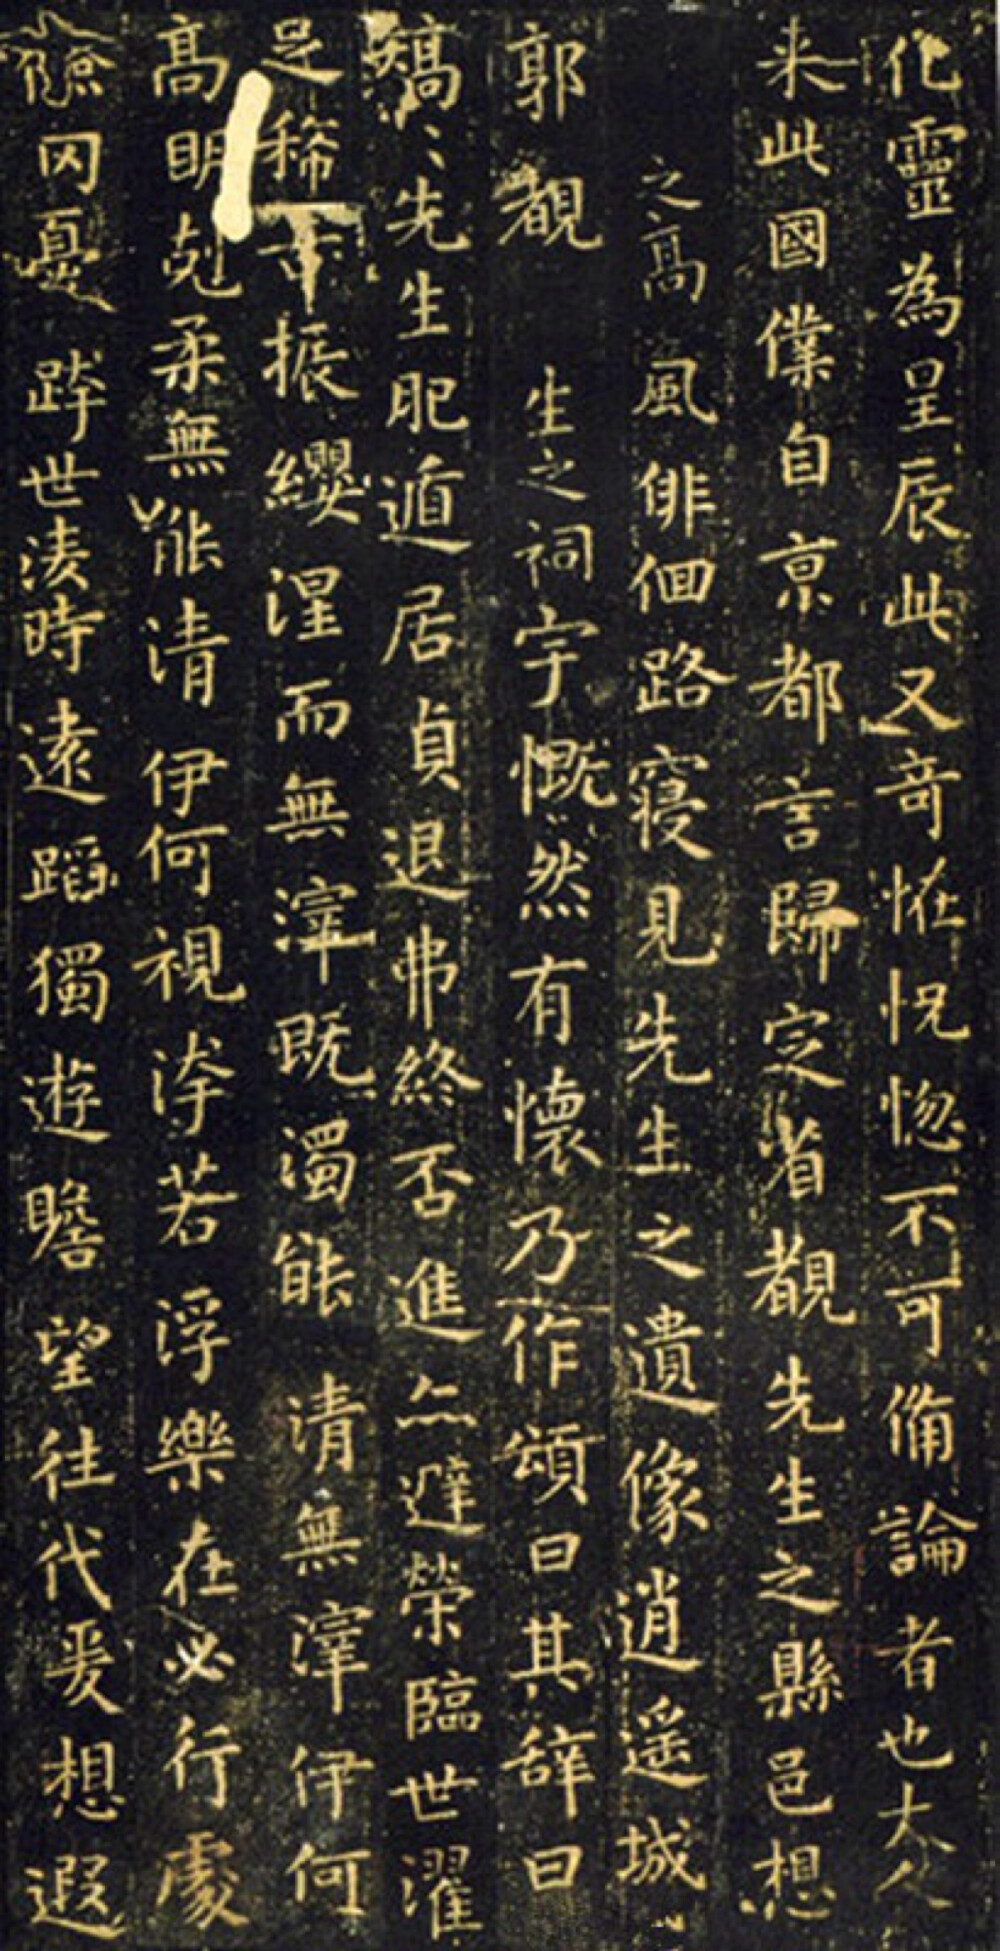 化靈為星辰此又奇恠怳惚不可備論者也大人
来此國僕自京都言歸定省覩先生之縣邑想
之高風俳佪路寢見先生之遺像逍遥城
郭覩生之祠宇慨然有懷乃作頌曰其辞曰
矯〻先生肥遁居貞退弗終否進亦避榮臨世濯
足稀古振纓涅而無滓既濁能清無滓伊何
高明剋柔無能清伊何視洿若浮樂在必行處
儉罔憂跨世淩時遠蹈獨遊瞻望往代爰想遐